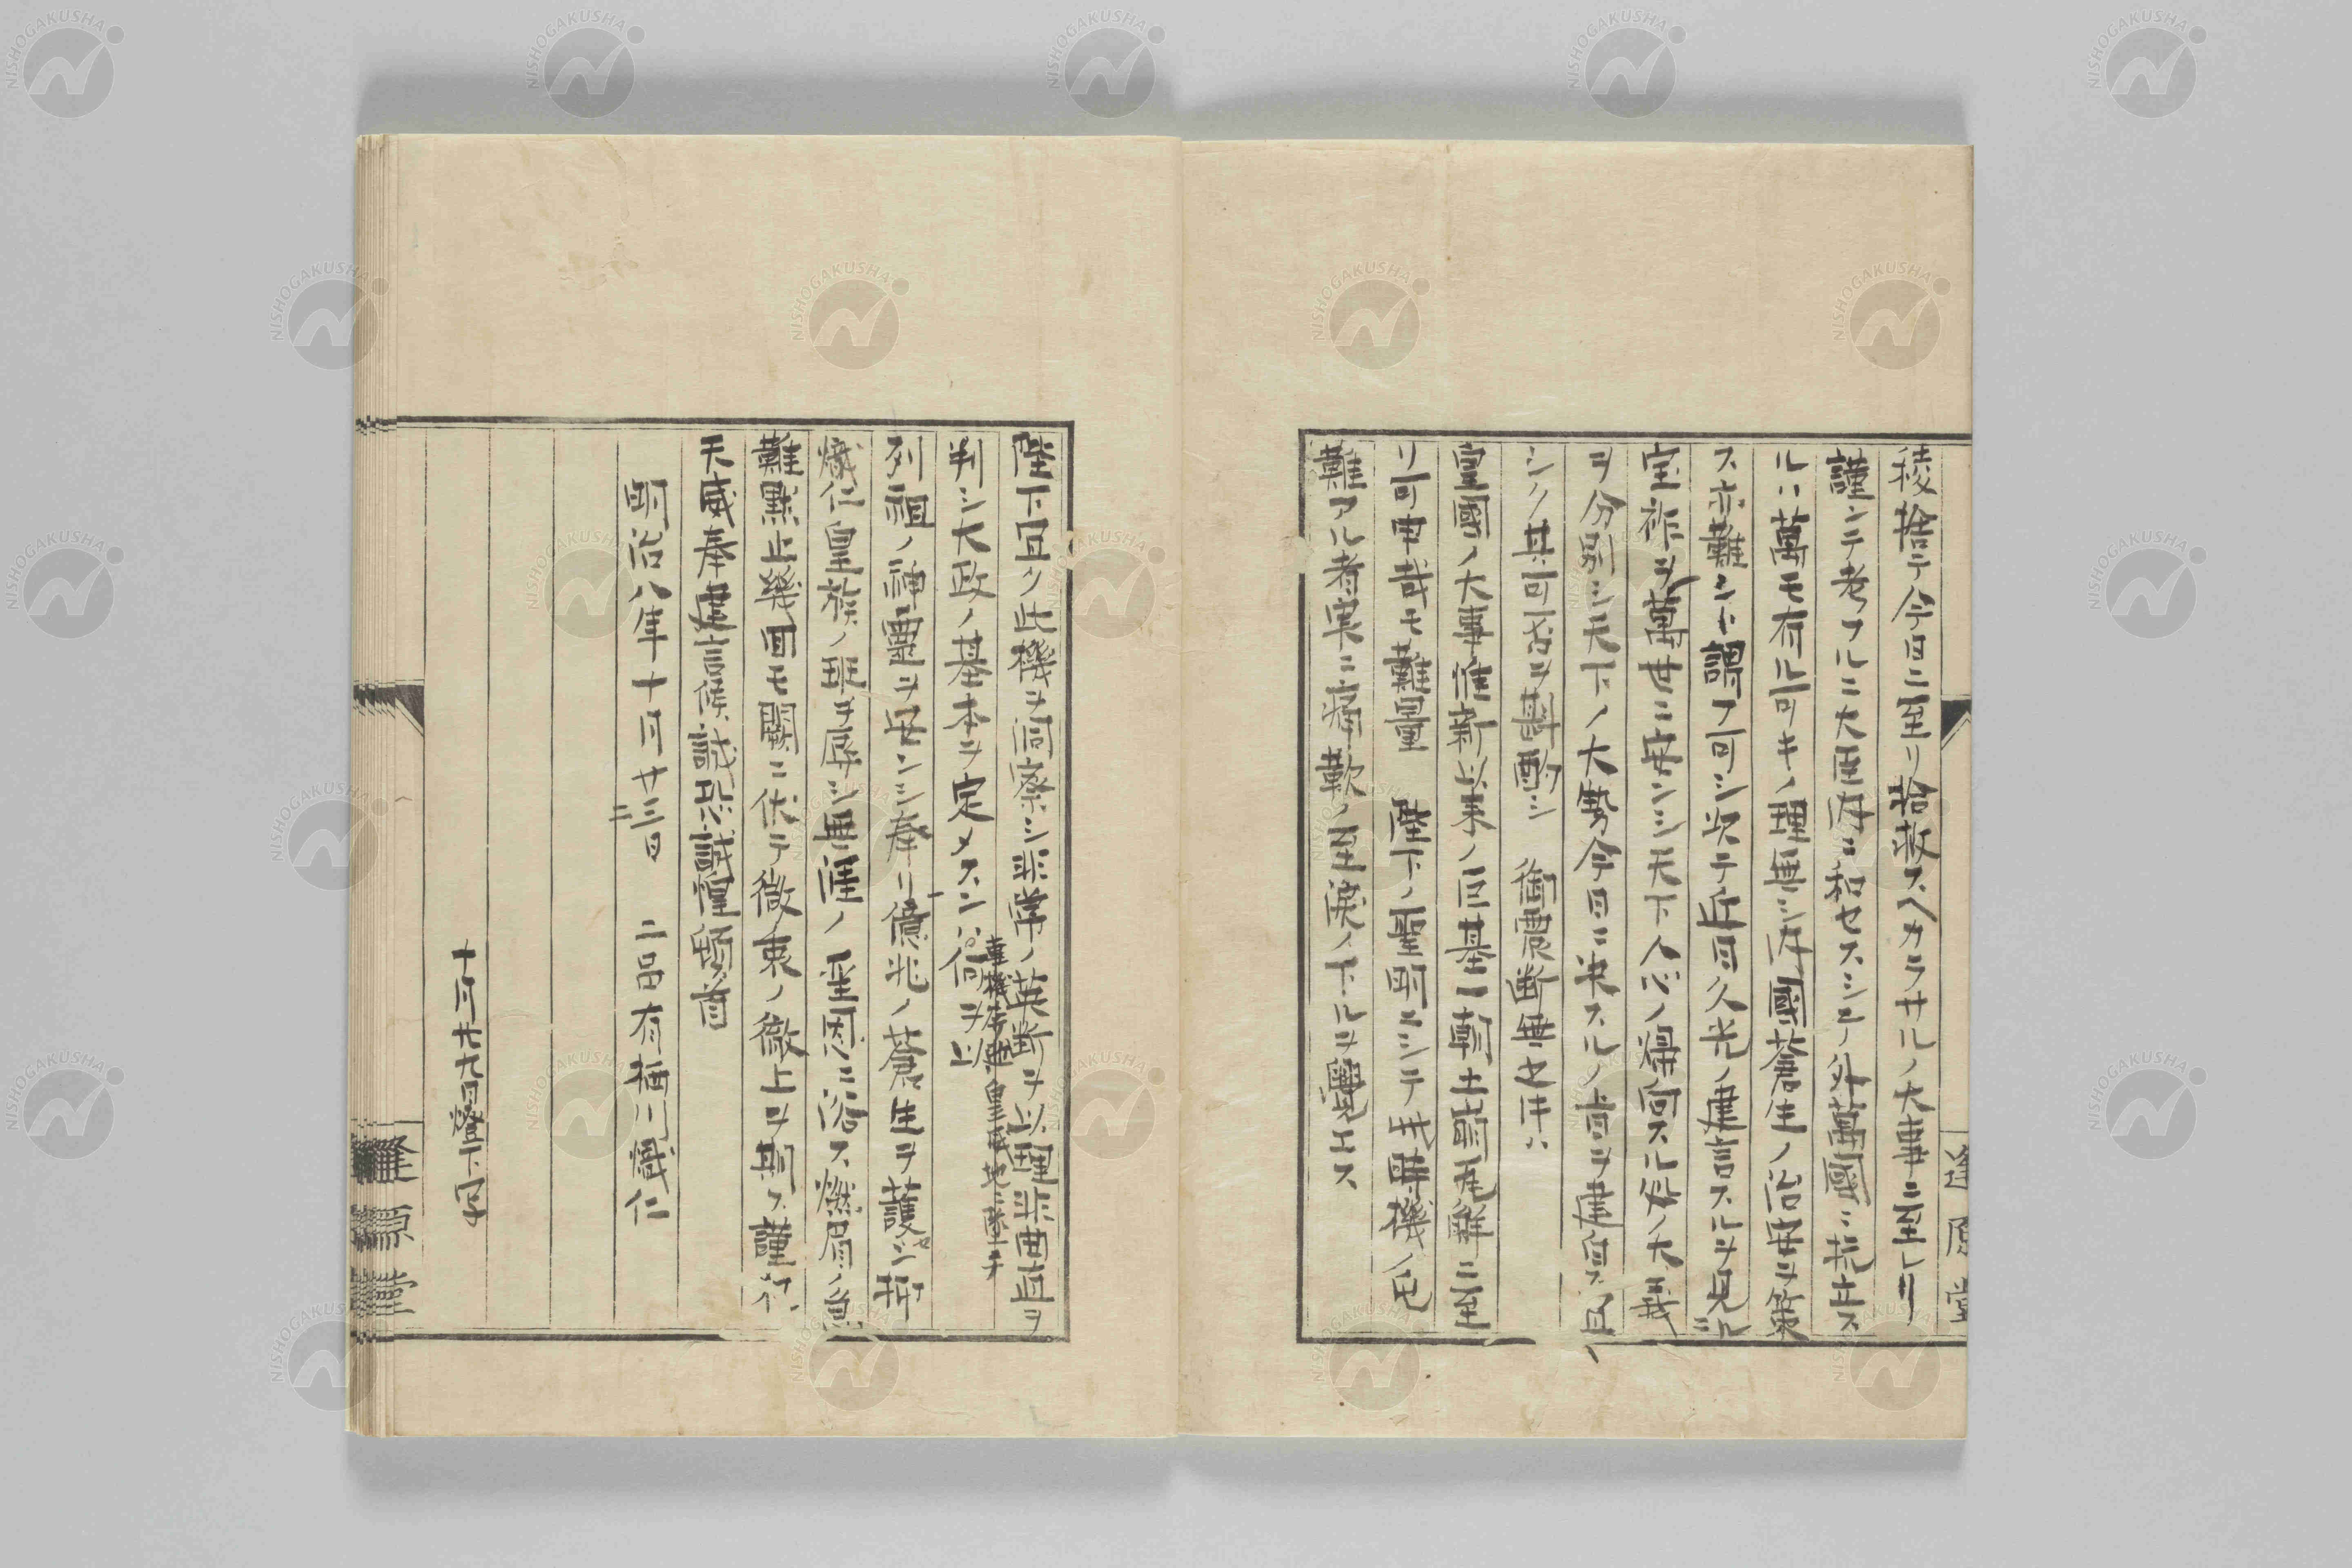 稜捨テ今日ニ至リ拾救スヘカラサルノ大事ニ至レリ
謹ンテ考フルニ大臣内ニ和セスシテ外萬國ニ抗立ス
ルハ萬モ有ル可キノ理無シ内國蒼生ノ治安ヲ策
ス亦難シト謂フ可シ次テ近日久光ノ建言スルヲ見ル
宝祚ヲ萬世ニ安ンシ天下人心ノ帰向スル処ノ大義
ヲ分別シ天下ノ大勢今日ニ決スルノ旨ヲ建白ス且
シク其可否ヲ斟酌シ 御震断無之件ハ
皇國ノ大事維新以来ノ巨基一朝土崩瓦觧ニ至
リ可申哉モ難量 陛下ノ聖明ニシテ此時機ノ危
難アル者実ニ痛歎ノ至ニ
陛下宜ク此機ヲ洞察シ非常ノ英断ヲ以理非曲直ヲ
判シ大政ノ基本ヲ定メスンハ何ヲ以
列祖ノ神霊ヲ安ンシ奉リ億兆ノ蒼生ヲ護シ抑
熾仁皇族ノ班ヲ辱シ無涯ノ聖恩ニ浴ス燃眉ノ急
難黙止幾回モ闕ニ伏テ微衷ノ徹上ヲ期ス謹行
天威奉建言候誠恐誠惶頓首
明治八年十月廿三日 二品有栖川熾仁
十月廿九日燈下写
逢原堂
逢原堂